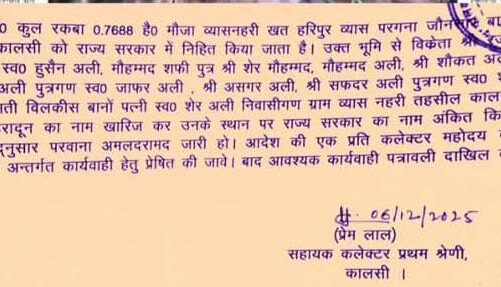 0 कुल रकबा 0.7688 है0 मौजा व्यासनहरी खत हरिपुर व्यास परगना जौनसार
कालसी को राज्य सरकार में निहित किया जाता है। उक्त भूमि से विक्रेता श्री
स्व0 हुसैन अली, मौहम्मद शफी पुत्र श्री शेर मौहम्मद, मौहम्मद अली, श्री शौकत अली
अली पुत्रगण स्व0 जाफर अली , श्री असगर अली, श्री सफदर अली पुत्रगण स्व0
विलकीस बानों पत्नी स्व0 शेर अली निवासीगण ग्राम व्यास नहरी तहसील
का नाम खारिज कर उनके स्थान पर राज्य सरकार का नाम अंकित
परवाना अमलदरामद जारी हो। आदेश की एक प्रति कलेक्टर महोदय
अन्तर्गत कार्यवाही हेतु प्रेषित की जावे। बाद आवश्यक कार्यवाही पत्रावली दाखिल
06/12/2025
(प्रेम लाल)
सहायक कलेक्टर प्रथम श्रेणी,
कालसी ।